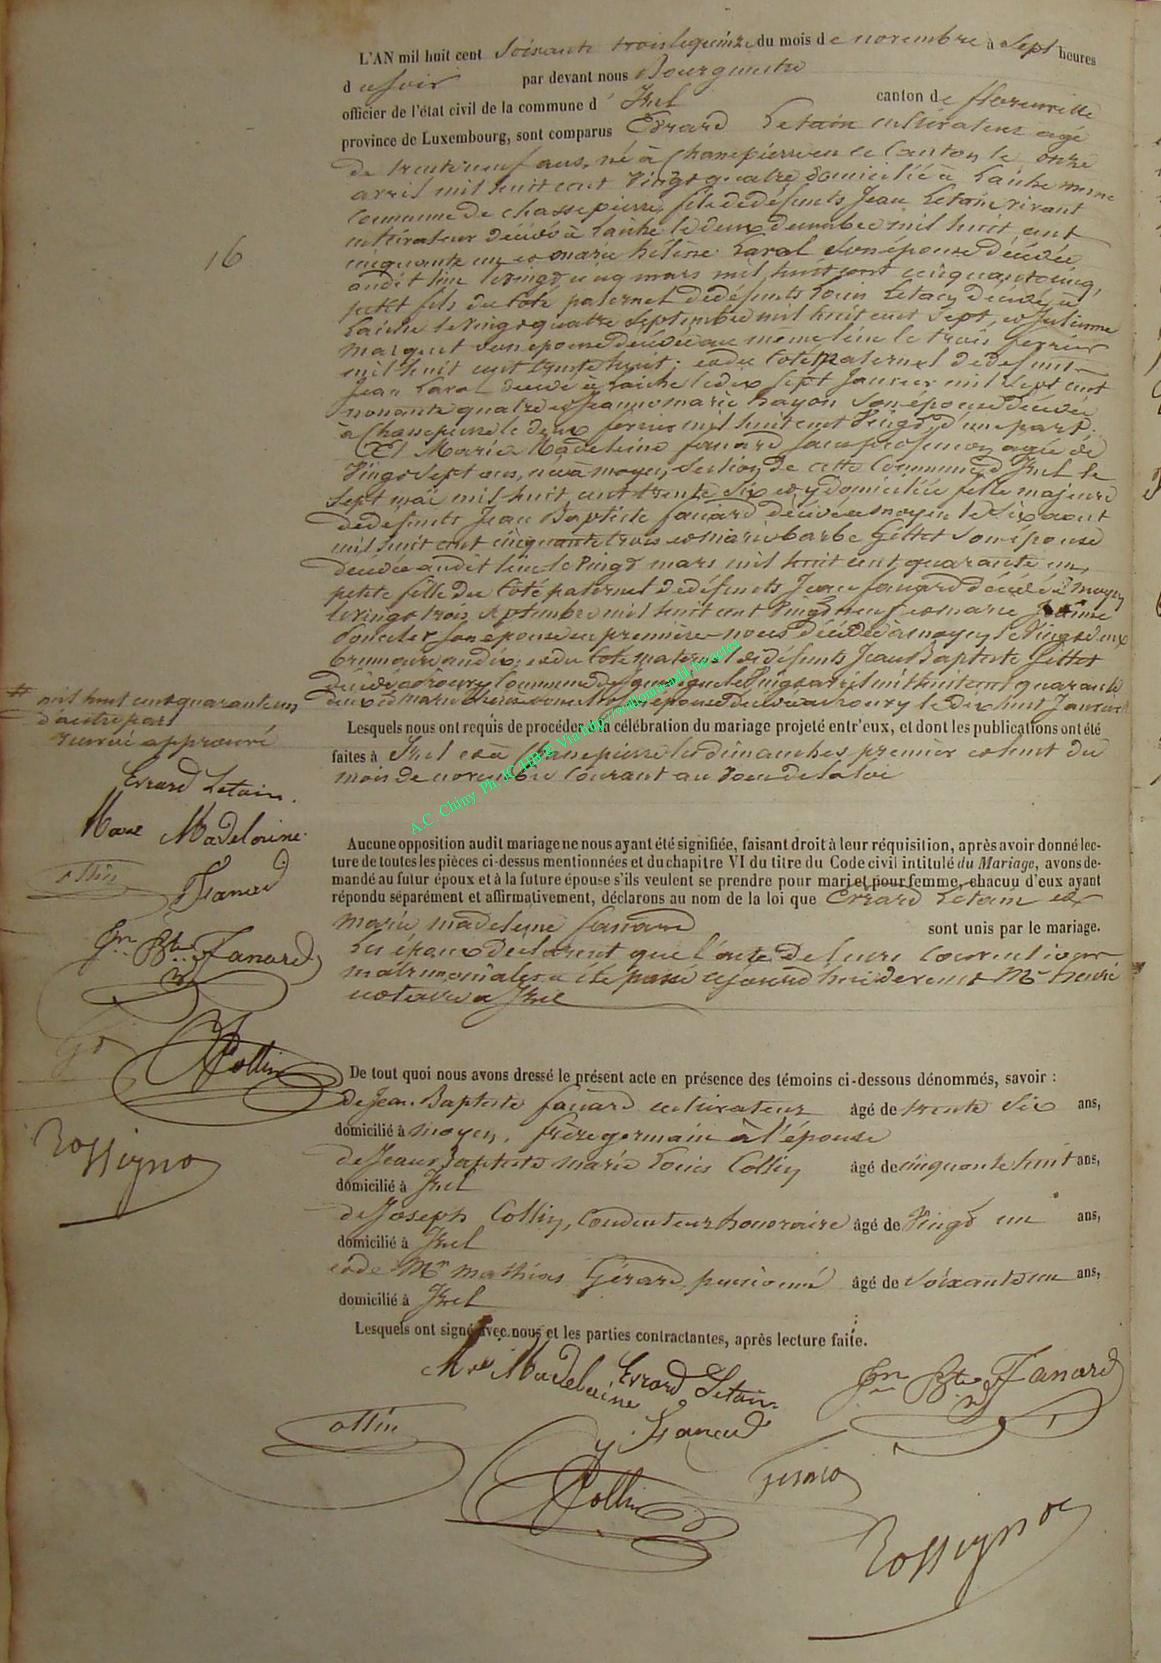 L'AN mil huit cent soixante trois le quinze du mois de novembre à sept heures
du soir par devant nous Bourgmestre
officier de l'état civil de la commune d' Izel canton de florenville
province de Luxembourg, sont comparus Evrard Letain cultivateur agé
de trente neuf ans, né à Chassepierre en ce Canton le onze
avril mil huit cent vingt quatre domicilié à Laiche même
Commune de Chassepierre, fils de défunts Jean Letain vivant
cultivateur décédé à Laiche le deux décembre mil huit cent
cinquante un et marie hélène Laval son épouse décédée
audit lieu le vingt cinq mars mil huit cent cinquante cinq,
petit fils du Coté paternel de défunts Louis Letain décédé à
Laiche le vingt quatre Septembre mil huit cent sept, et Julienne
son épouse décédée au même lieu le trois février
mil huit cent trente huit; et du Coté maternel de défunts
Jean Laval décédé à Laiche le dix sept Janvier mil sept cent
nonante quatre et Jeanne marie hayon son épouse décédée
à Chassepierre le deux février mil huit cent vingt, d'une part.
Et Marie Madeleine fanard sans profession agée de
vingt sept ans, née à moyen, section de cette Commune d'Izel le
sept mai mil huit cent trente Six et y domiciliée fille majeure
de défunts Jean Baptiste fanard décédé à moyen le six aout
mil huit cent cinquante trois et marie barbe Gillet son épouse
décédée audit lieu le vingt mars mil huit cent quarante un,
petite fille du Coté paternel de défunts Jean fanard décédé à moyen
le vingt trois Septembre mil huit cent vingt neuf et marie Jeanne
Poncelet son épouse en première noces décédée à moyen le vingt deux
brumaire an dix; et du Coté maternel de défunts Jean Baptiste Gillet
décédé à rouvroy Commune de le vingt avril mil huit cent quarante
deux et marie son épouse décédée à rouvroy le dix huit Janvier
# mil huit cent quarante un
d'autre part
renvoi approuvé
Evrard Letain.
Marie Madeleine
Fanard
ollin
Jn Bte Fanard
Collin
Rossignon
16
Lesquels nous ont requis de procéder à la célébration du mariage projeté entr'eux, et dont les publications ont été
faites à Izel et à Chassepierre les dimanches premier et huit du
mois de novembre Courant au voeu de la loi
Aucune opposition audit mariage ne nous ayant été signifiée, faisant droit à leur réquisition, après avoir donné lec-
ture de toutes les pièces ci-dessus mentionnées et du chapitre VI du titre du Code civil intitulé du Mariage, avons de-
mandé au futur époux et à la future épouse s'ils veulent se prendre pour mari et pour femme, chacun d'eux ayant
répondu séparément et affirmativement, déclarons au nom de la loi que Evrard Letain et
marie madeleine fanard sont unis par le mariage.
Les époux déclarent que l'acte de leurs Conventions
matrimoniales a été passé aujourd'hui devant Me henri
notaire à Izel
De tout quoi nous avons dressé le présent acte en présence des témoins ci-dessous dénommés, savoir :
de Jean Baptiste fanard cultivateur âgé de trente six ans,
domicilié à moyen, frère germain à l'épouse
de Jean Baptiste marie Louis Collin âgé de cinquante huit ans,
domicilié à Izel
de Joseph Collin, Conducteur honoraire âgé de vingt un ans,
domicilié à Izel
et de Mr mathias Gérard, pensionné âgé de soixante un ans,
domicilié à Izel
Lesquels ont signé avec nous et les parties contractantes, après lecture faite.
Mie Madeleine Evrard Letain Jn Bte Fanard
Fanard
ollin
Collin
Rossignon
A.C. Chiny Ph. JC HB-E Via http://wallonia-asbl.be/actes